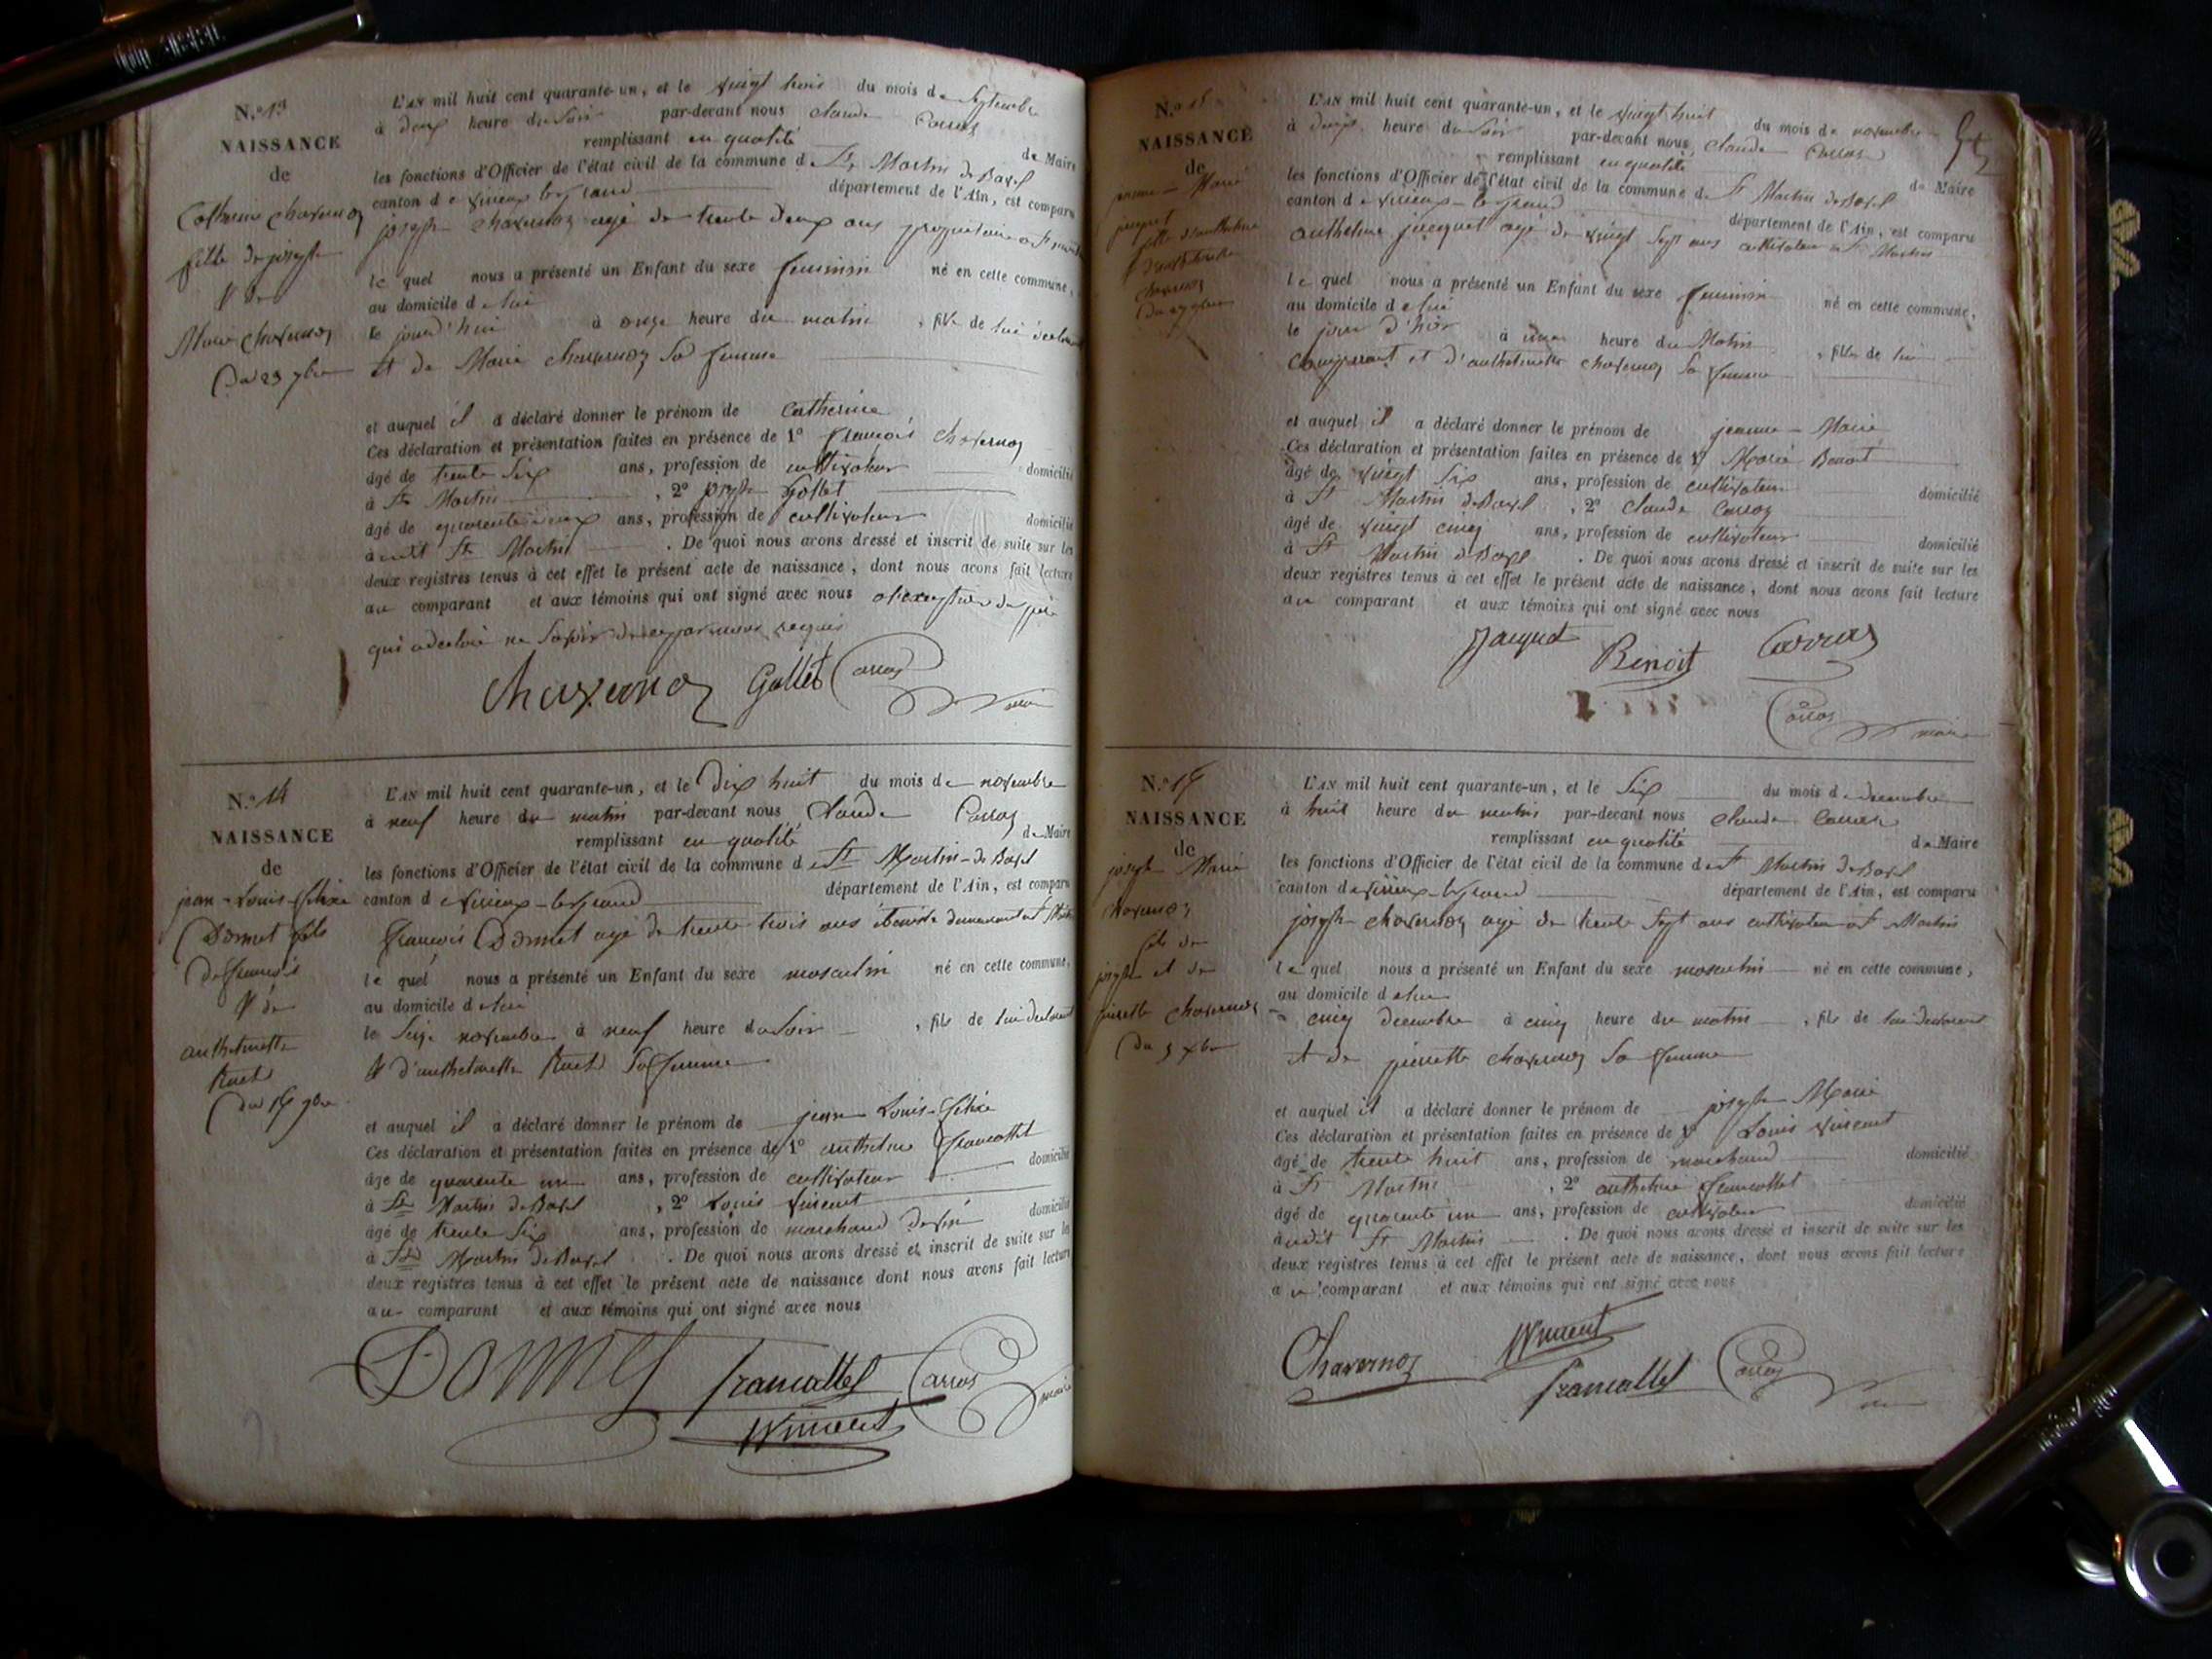 N.º 13
NAISSANCE
de
Catherine Chavernoz
fille de joseph
& de
Marie Chavernoz
Du 23 7bre
L'AN mil huit cent quarante-un, et le vingt trois du mois de Septembre
à deux heure du Soir par-devant nous Claude Carros
remplissant en qualité de Maire
les fonctions d'Officier de l'état civil de la commune de St Martin de Bavel
canton de virieux legrand département de l'Ain, est comparu
joseph Chavernoz agé de trente deux ans propriétaire a St
le quel nous a présenté un Enfant du sexe feminin né en cette commune,
au domicile de lui
le jourd'hui à onze heure du matin , fille de lui
et de Marie Chavernoz Sa femme
et auquel il a déclaré donner le prénom de Catherine
Ces déclaration et présentation faites en présence de 1º françois Chavernoz
âgé de trente Six ans, profession de cultivateur domicilié
à St Martin , 2º joseph Gollet
âgé de quarente ans, profession de cultivateur domicilié
audit St Martin . De quoi nous avons dressé et inscrit de suite sur les
deux registres tenus à cet effet le présent acte de naissance, dont nous avons fait lecture
au comparant et aux témoins qui ont signé avec nous
qui a declaré ne Savoir requis
Chavernoz Gollet Carros
maire
N.º 14
NAISSANCE
de
jean-Louis-felixe
Dornet fils
De françois
& de
anthelmette
Du 16 9bre
L'AN mil huit cent quarante-un, et le Dix huit du mois de novembre
à neuf heure du matin par-devant nous Claude Carros
remplissant en qualité de Maire
les fonctions d'Officier de l'état civil de la commune de St Martin-de Bavel
canton de virieux-legrand département de l'Ain, est comparu
françois Dornet agé de trente trois ans demeurant a St
le quel nous a présenté un Enfant du sexe masculin né en cette commune,
au domicile de lui
le Seize novembre à neuf heure du Soir , fils de lui declarant
& d'anthelmette Sa femme
et auquel il a déclaré donner le prénom de jean Louis-felixe
Ces déclaration et présentation faites en présence de 1º anthelme francallet
âgé de quarente un ans, profession de cultivateur domicilié
à St Martin de Bavel , 2º Louis vincent
âgé de trente Six ans, profession de marchand domicilié
à St Martin de Bavel . De quoi nous avons dressé et inscrit de suite sur les
deux registres tenus à cet effet le présent acte de naissance dont nous avons fait lecture
au comparant et aux témoins qui ont signé avec nous
Dornet francallet Carros
maire
Vincent
N.º 15
NAISSANCE
de
jeanne-Marie
jacquet
fille d'anthelme
& d'anthelmette
Chavernoz
L'AN mil huit cent quarante-un, et le vingt huit du mois de novembre
à deux heure du Soir par-devant nous Claude Carros
remplissant en qualité de Maire
les fonctions d'Officier de l'état civil de la commune de St Martin de Bavel
canton de virieux-legrand département de l'Ain, est comparu
anthelme jacquet agé de vingt Sept ans cultivateur a St Martin
le quel nous a présenté un Enfant du sexe feminin né en cette commune,
au domicile de lui
le jour d'hier à une heure du Matin , fille de lui
Comparant et d'anthelmette Chavernoz Sa femme
et auquel il a déclaré donner le prénom de jeanne-Marie
Ces déclaration et présentation faites en présence de 1º Marie Benoit
âgé de vingt Six ans, profession de cultivateur domicilié
à St Martin de Bavel , 2º Claude Carros
âgé de vingt cinq ans, profession de cultivateur domicilié
à St Martin de Bavel . De quoi nous avons dressé et inscrit de suite sur les
deux registres tenus à cet effet le présent acte de naissance, dont nous avons fait lecture
au comparant et aux témoins qui ont signé avec nous
Jacquet Benoit Carros
Carros
maire
N.º
NAISSANCE
de
joseph Marie
Chavernoz
fils de
joseph et de
pierrette Chavernoz
Du 5 Xbre
L'AN mil huit cent quarante-un, et le Six du mois de decembre
à huit heure du matin par-devant nous Claude Carros
remplissant en qualité de Maire
les fonctions d'Officier de l'état civil de la commune de St Martin de Bavel
canton de virieux-legrand département de l'Ain, est comparu
joseph Chavernoz agé de trente Sept ans cultivateur a St Martin
le quel nous a présenté un Enfant du sexe masculin né en cette commune,
au domicile de lui
le cinq decembre à cinq heure du matin , fils de lui declarant
et de pierrette Chavernoz Sa femme
et auquel il a déclaré donner le prénom de joseph Marie
Ces déclaration et présentation faites en présence de 1º Louis vincent
âgé de trente huit ans, profession de marchand domicilié
à St Martin , 2º anthelme francallet
âgé de quarente un ans, profession de cultivateur domicilié
audit St Martin . De quoi nous avons dressé et inscrit de suite sur les
deux registres tenus à cet effet le présent acte de naissance, dont nous avons fait lecture
au comparant et aux témoins qui ont signé avec nous
Chavernoz Vincent
francallet Carros